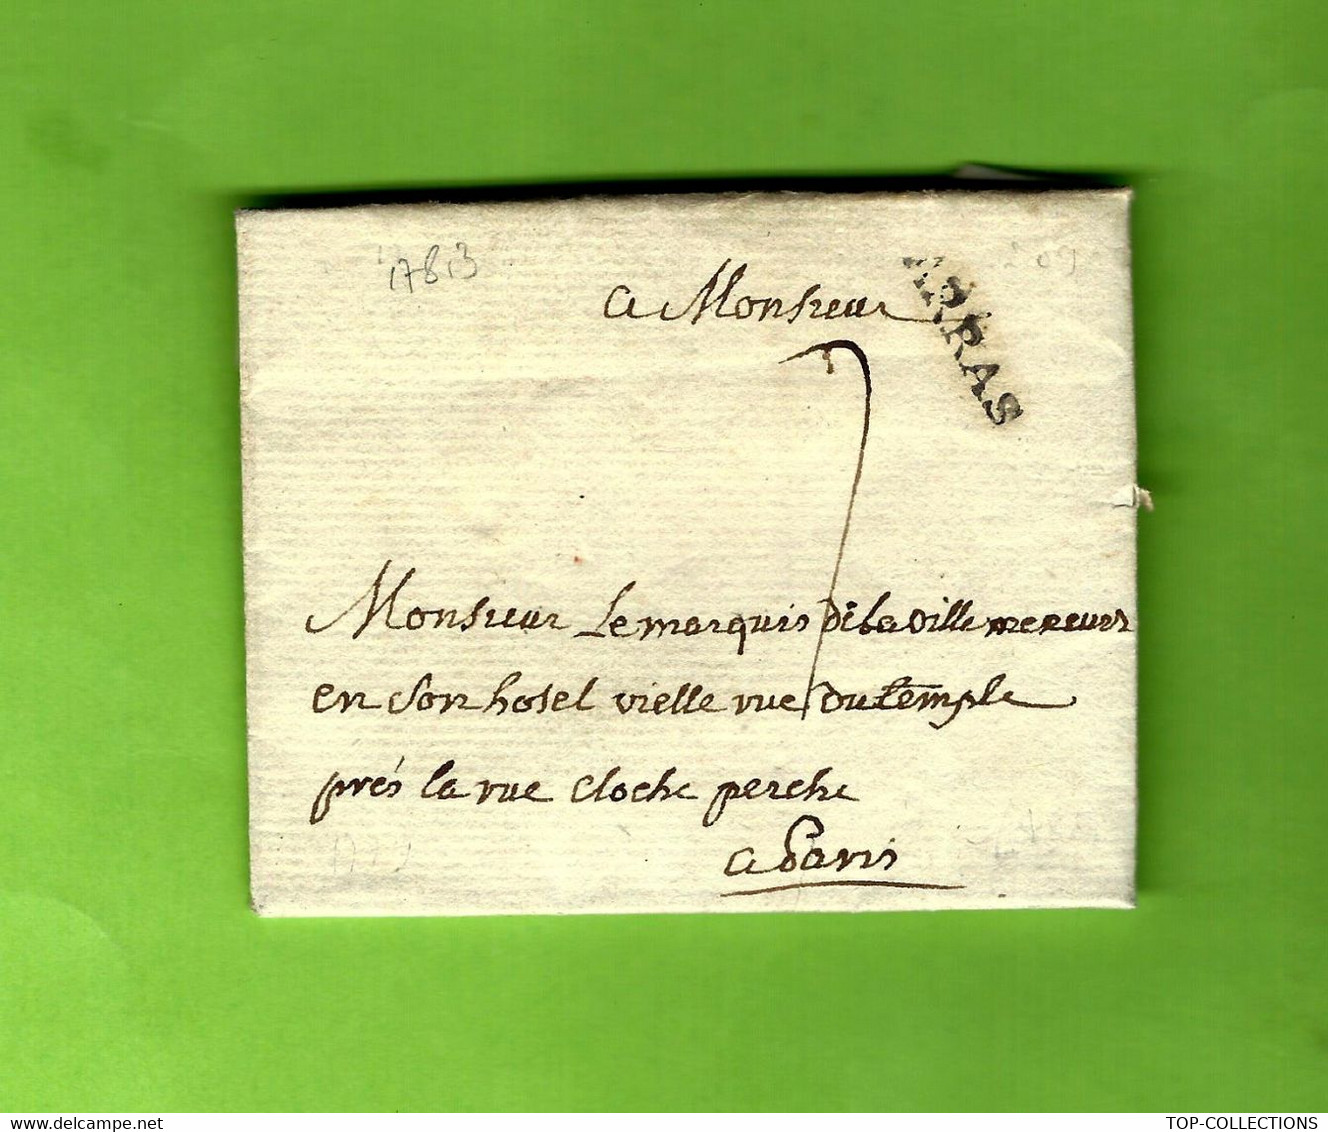 1783
a Monsieur
ARRAS
7
Monsieur Le marquis de la ville
en son hotel vielle rue du temple
prés la rue cloche perche
a Paris
TOP-COLLECTIONS